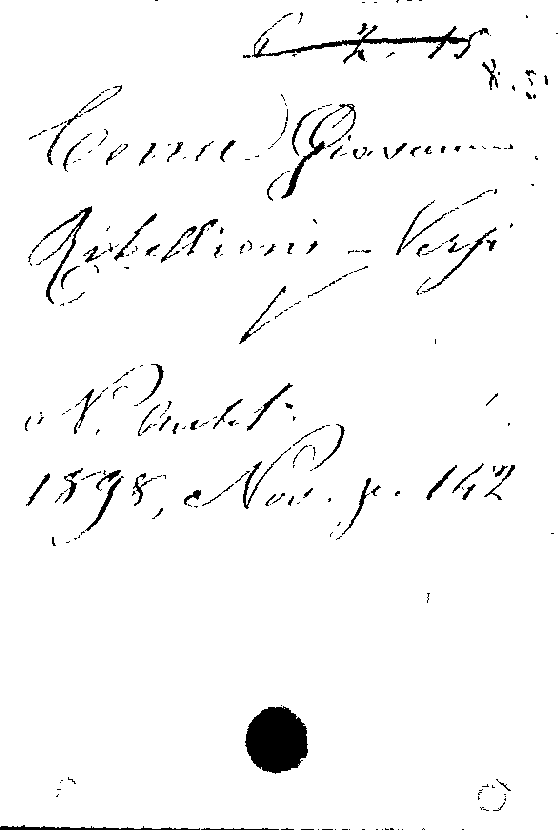 6. 2. 15
8. 5
Cena Giovanni
Ribellioni - Versi
N. Antol.
1898, Nov. p. 142